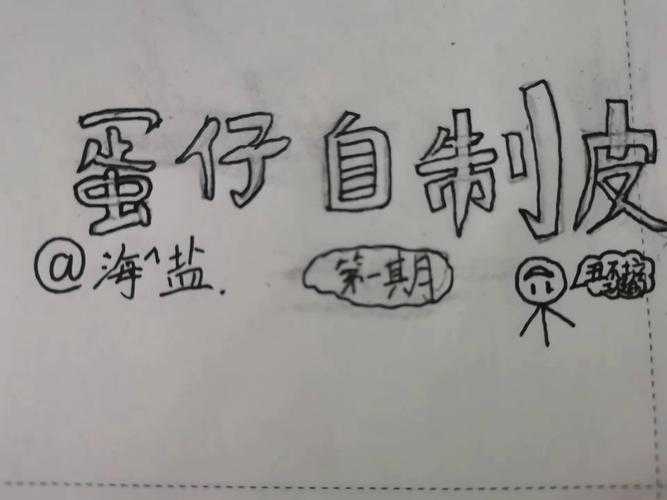 蛋仔自制皮
@海^盐.
第一期